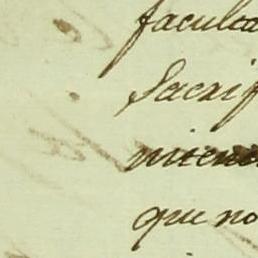 faculta
Sacrif
que no